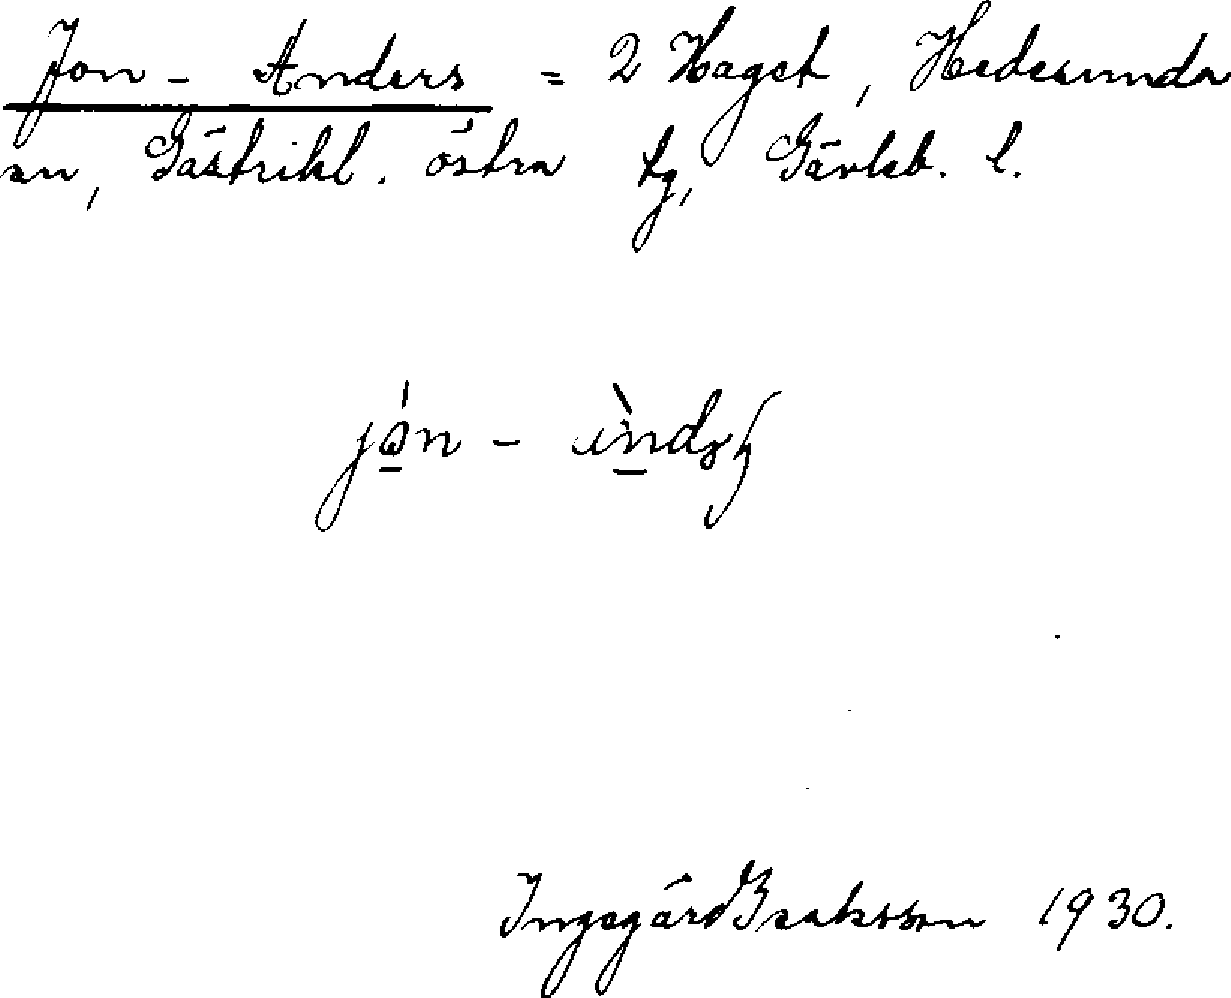 Jon - Anders = 2 Haget, Hedesunda
sn, Gästrikl. östra tg, Gävleb. l.
jón -
Ingegärd Isaksson 1930.